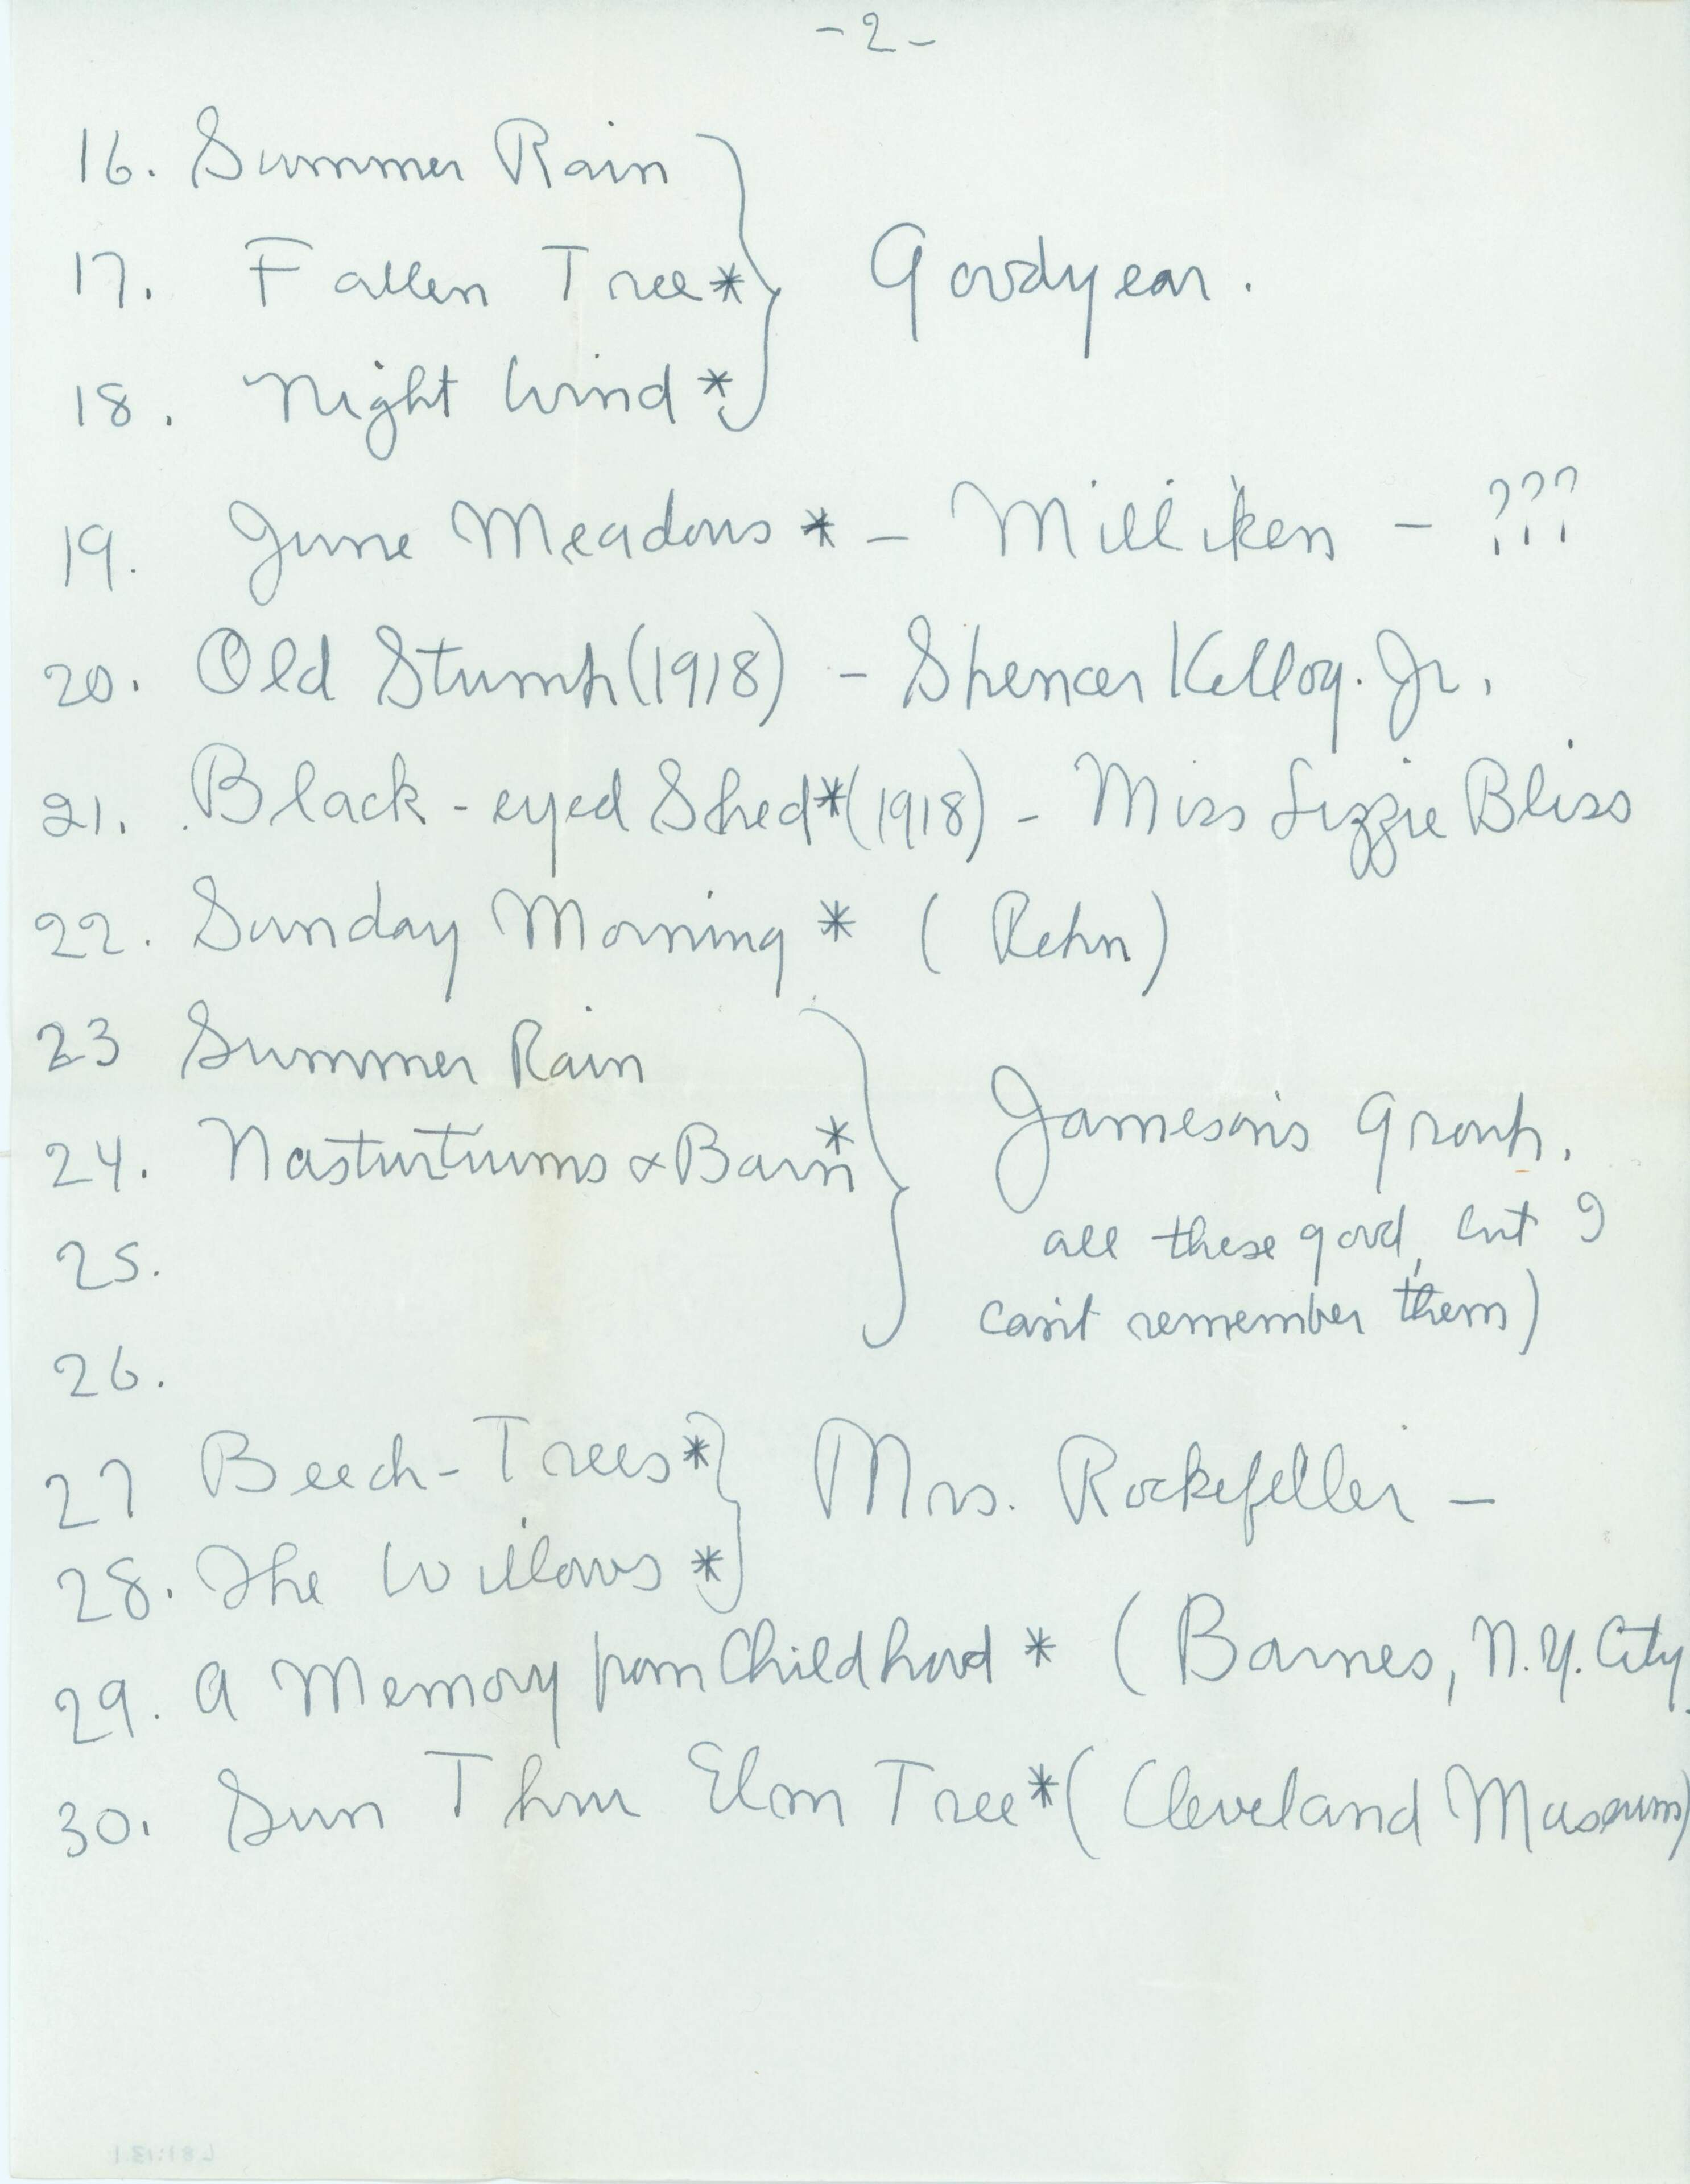 - 2 -
16. Summer Rain
17. Fallen Tree * Goodyear.
18. Night Wind *
19. June Meadows * - Milliken - ???
20. Old Stump (1918) - Spencer Kellog. Jr.
21. Black-eyed Shed * (1918) - Miss Lizzie Bliss
22. Sunday Morning * (Rehn)
23 Summer Rain
24. Nasturtiums & Barn * Jameson's Group.
25. all these good, but I
can't remember them)
26.
27 Beech-Trees * Mrs. Rockefeller -
28. The Willows *
29. A Memory from Childhood * (Barnes, N.Y. City
30. Sun Thru Elm Tree * (Cleveland Museum)